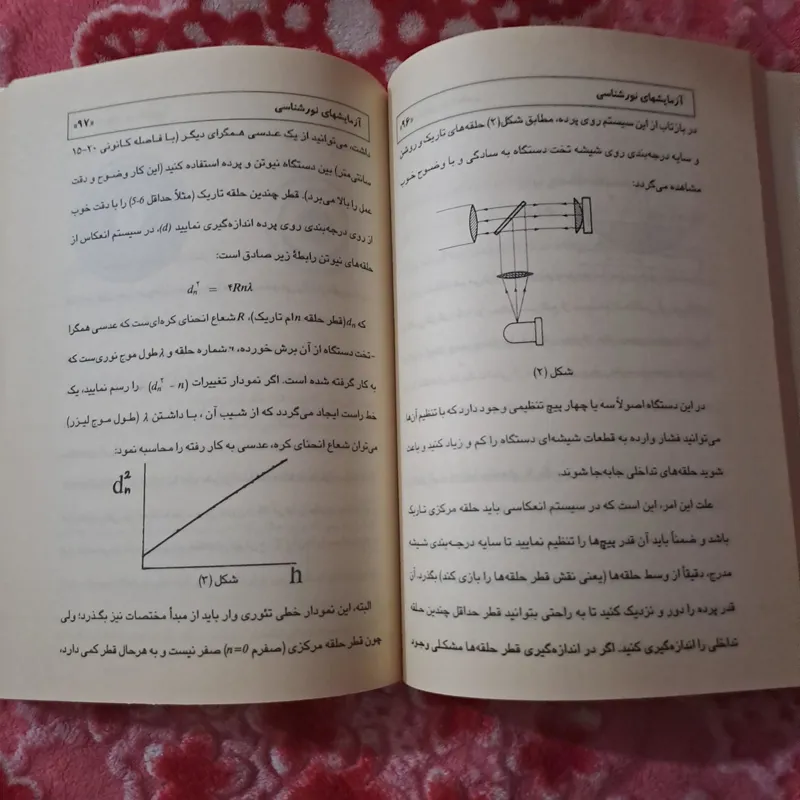 آزمایشهای نورشناسی
«۹۶»
در بازتاب از این سیستم روی پرده، مطابق شکل(۲) حلقه‌های تاریک و روشن
و سایه درجه‌بندی روی شیشه تخت دستگاه به سادگی و با وضوح خوب
مشاهده می‌گردد:
شکل (۲)
در این دستگاه اصولاً سه یا چهار پیچ تنظیمی وجود دارد که با تنظیم آن‌ها
می‌توانید فشار وارده به قطعات شیشه‌ای دستگاه را کم و زیاد کنید و باعث
شوید حلقه‌های تداخلی جابه‌جا شوند.
علت این امر، این است که در سیستم انعکاسی باید حلقه مرکزی تاریک
باشد و ضمناً باید آن قدر پیچ‌ها را تنظیم نمایید تا سایه درجه‌بندی شیشه
مدرج، دقیقاً از وسط حلقه‌ها (یعنی نقش قطر حلقه‌ها را بازی کند) بگذرد. آن
قدر پرده را دور و نزدیک کنید تا به راحتی بتوانید قطر حداقل چندین حلقه
تداخلی را اندازه‌گیری کنید. اگر در اندازه‌گیری قطر حلقه‌ها مشکلی وجود
آزمایشهای نورشناسی
«۹۷»
داشت، می‌توانید از یک عدسی همگرای دیگر (با فاصله کانونی ۲۰-۱۵
سانتی‌متر) بین دستگاه نیوتن و پرده استفاده کنید (این کار وضوح و دقت
عمل را بالا می‌برد). قطر چندین حلقه تاریک (مثلاً حداقل 6-5) را با دقت خوب
از روی درجه‌بندی روی پرده اندازه‌گیری نمایید (d)، در سیستم انعکاس از
حلقه‌های نیوتن رابطهٔ زیر صادق است:
dₙ² = ۴Rnλ
که dₙ(قطر حلقه nام تاریک)، R شعاع انحنای کره‌ای‌ست که عدسی همگرا
-تخت دستگاه از آن برش خورده، n شماره حلقه و λ طول موج نوری‌ست که
به کار گرفته شده است. اگر نمودار تغییرات (dₙ² - n) را رسم نمایید، یک
خط راست ایجاد می‌گردد که از شیب آن ، بـا داشتن λ (طـول مـوج لیـزر)
می‌توان شعاع انحنای کره، عدسی به کار رفته را محاسبه نمود:
dₙ²
h
شکل (۳)
البته، این نمودار خطی تئوری وار باید از مبدأ مختصات نیز بگذرد؛ ولی
چون قطر حلقه مرکزی (صفرم n=0) صفر نیست و به هرحال قطر کمی دارد،